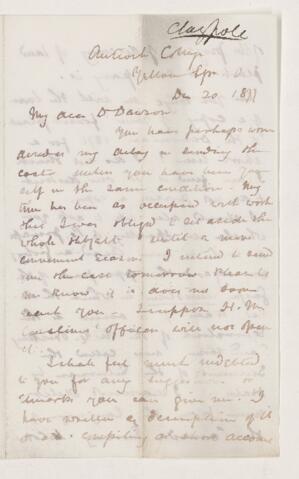 Claypole
Antioch College
Yellow Spr. O
Dec 20. 1877
My dear Dr Dawson
You have perhaps won
dered at my delay in sending the
casts unless you have been your
self in the same condition. My
time has been so occupied with work
that I was obliged to set aside the
whole subject until a more
convenient season. I intend to send
you the case tomorrow. Please let
me know if it does not soon
reach you. I suppose H. M.
Customs officers will not open
it.
I shall feel much indebted
to you for any suggestions or
remarks you can give me. I
have written a description of it
compiling a short account